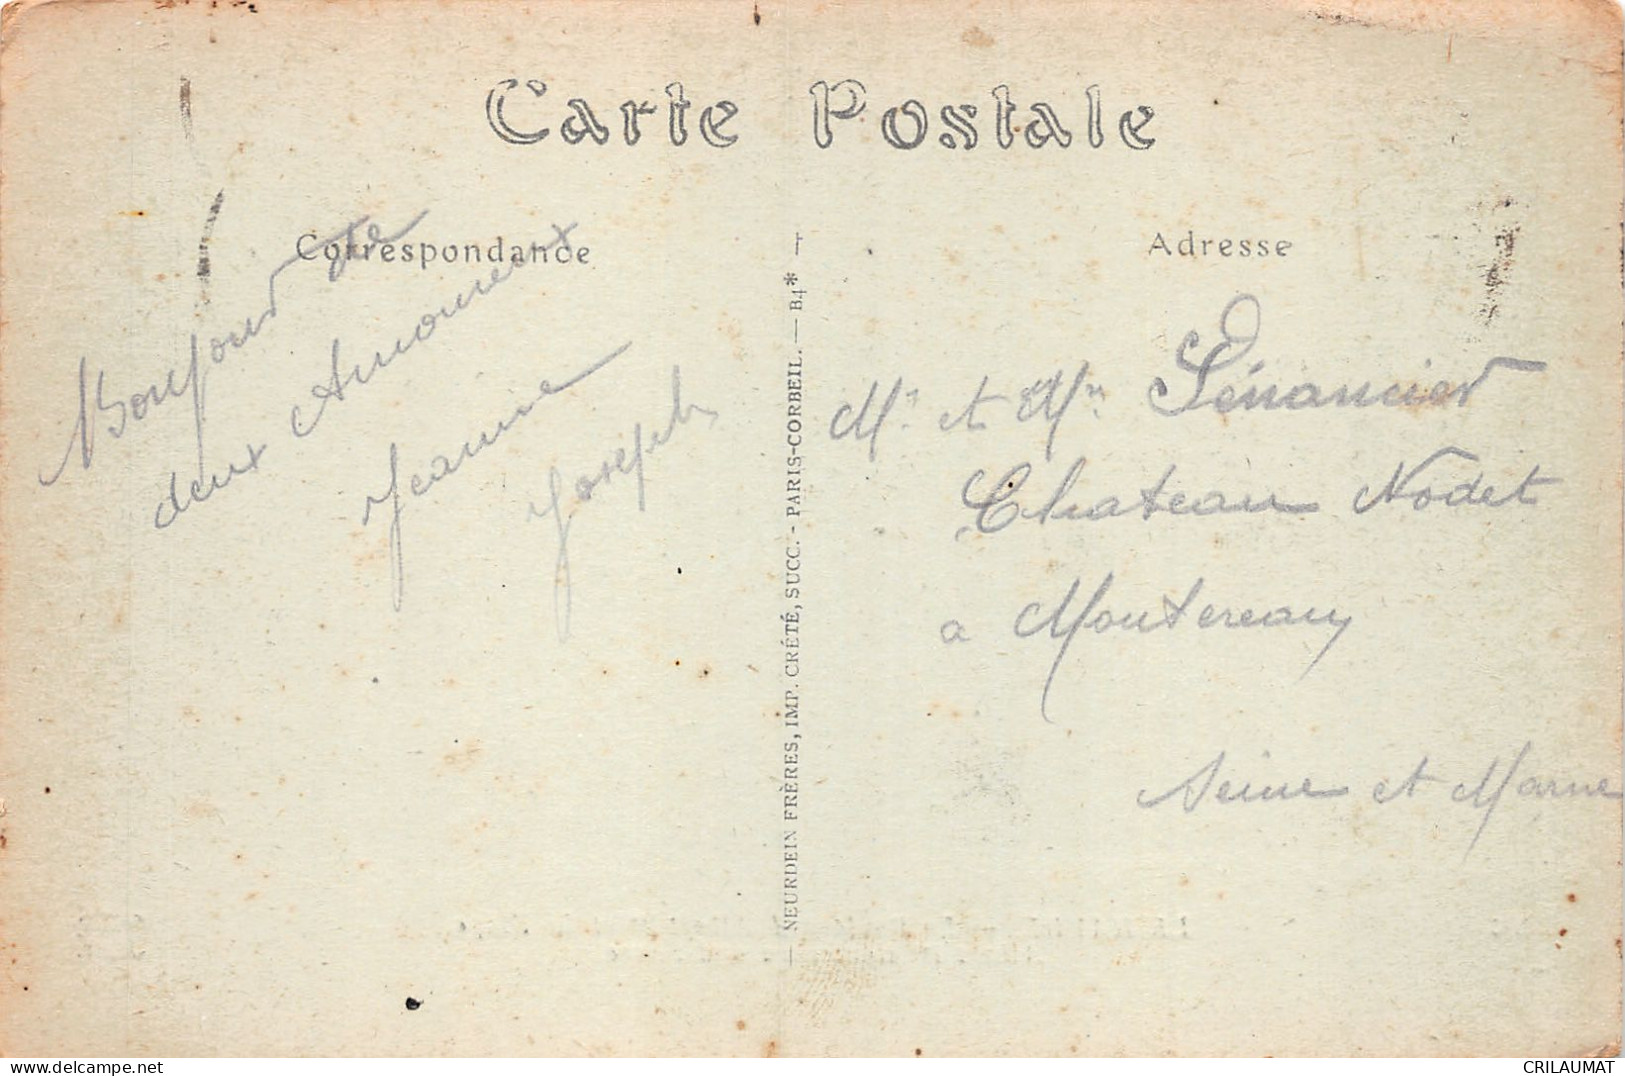 Carte Postale
Correspondance
Adresse
Bonjour de
deux Amoureux
Jeanne
Joseph
NEURDEIN FRÈRES, IMP. CRÉTÉ, SUCC. - PARIS-CORBEIL. — B4*
Mr et Mm Lénancier
Chateau Nodet
a Montereau
Seine et Marne
CRILAUMAT